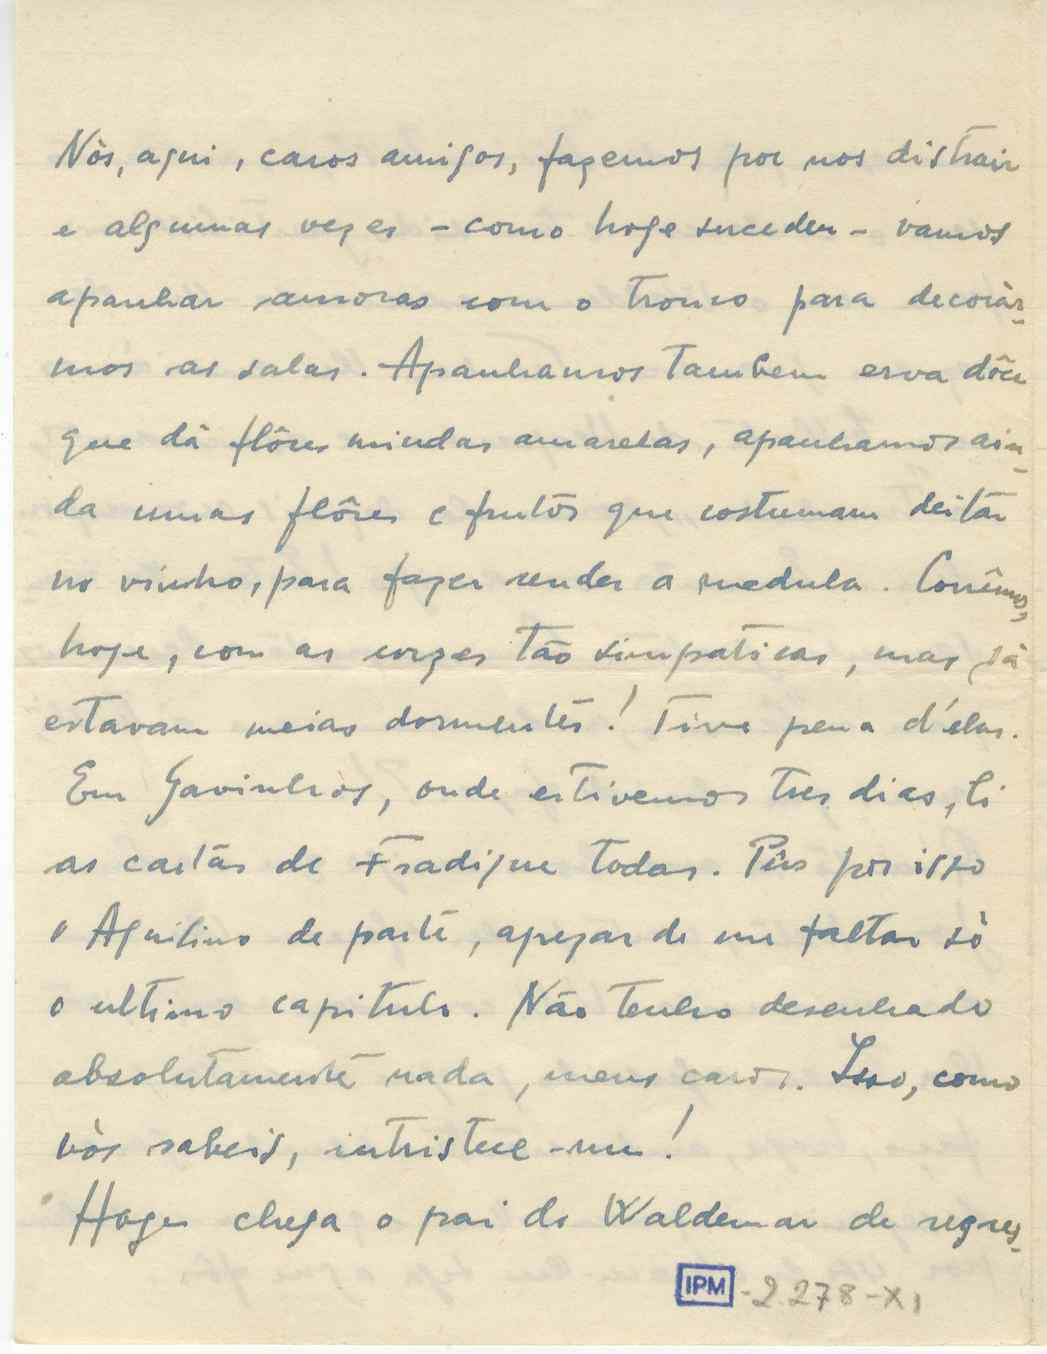 Nós, aqui, caros amigos, fazemos por nos distrair
e algumas vezes - como hoge suceden - vamos
apanhar amoras com o tronco para decorár-
mos as salas. Apanhamos tambem erva dôce
que dá flôres miudas amarelas, apanhamos ain-
da umas flôres e frutos que costumam deitar
no vinho, para fazer render a medula. Corrêmos,
hoge, com as corças tão simpaticas, mas já
estavam meias dormentes! Tive pena d'elas.
Em Gavinhos, onde estivemos tres dias, li
as cartas de Fradique todas. Pús por isso
o Aquilino de parte, apezar de me faltar só
o ultimo capitulo. Não tenho desenhado
absolutamente nada, meus caros. Isso, como
vós sabeis, intristece-me!
Hoge chega o pai do Waldemar de regres-
IPM - 2.278-XI